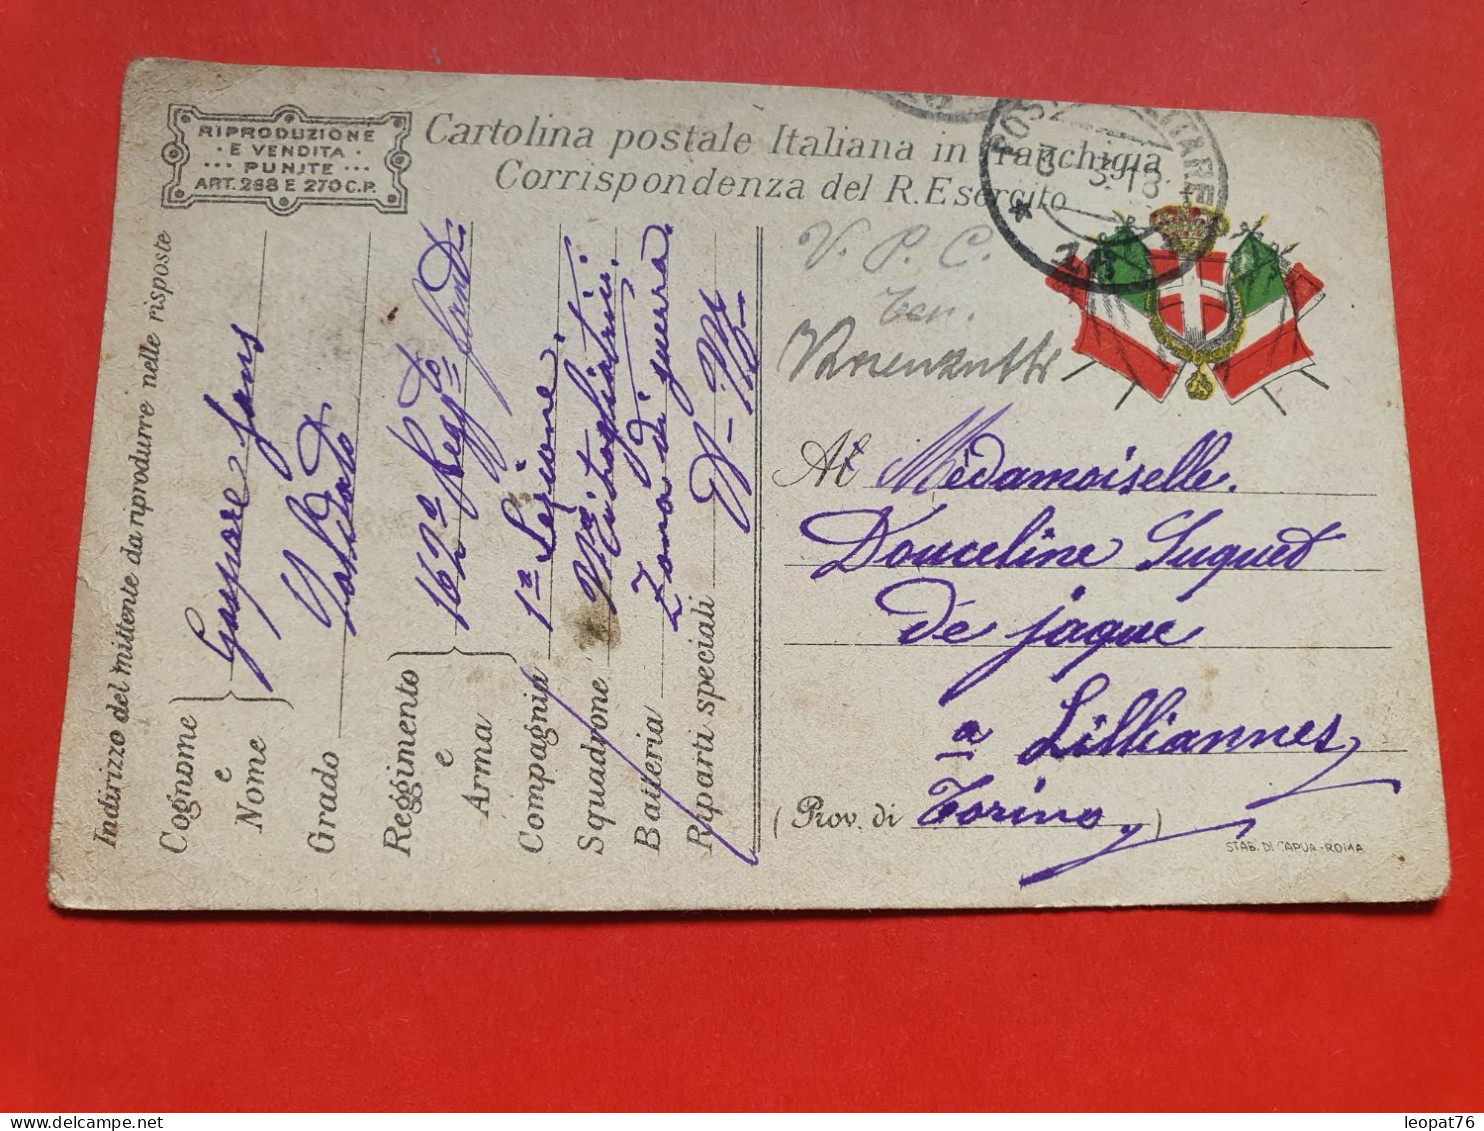 RIPRODUZIONE
E VENDITA
PUNITE
ART. 268 E 270 C.P.
Cartolina postale Italiana in franchigia
Corrispondenza del R. Esercito
POSTA MILITARE
3. 18
V. P. C.
Ten.
Al Mèdamoiselle.
Douceline Suquet
de jaque
a Lilliannes
(Prov. di Torino)
STAB. DI CAPUA - ROMA
Indirizzo del mittente da riprodurre nelle risposte
Cognome e Nome Gaspare
Grado Soldato
Reggimento e Arma 162º Reggtº
Compagnia 1ª Sezione.
Squadrone Mitragliatrici.
Batteria Zona di guerra
Riparti speciali
leopat76